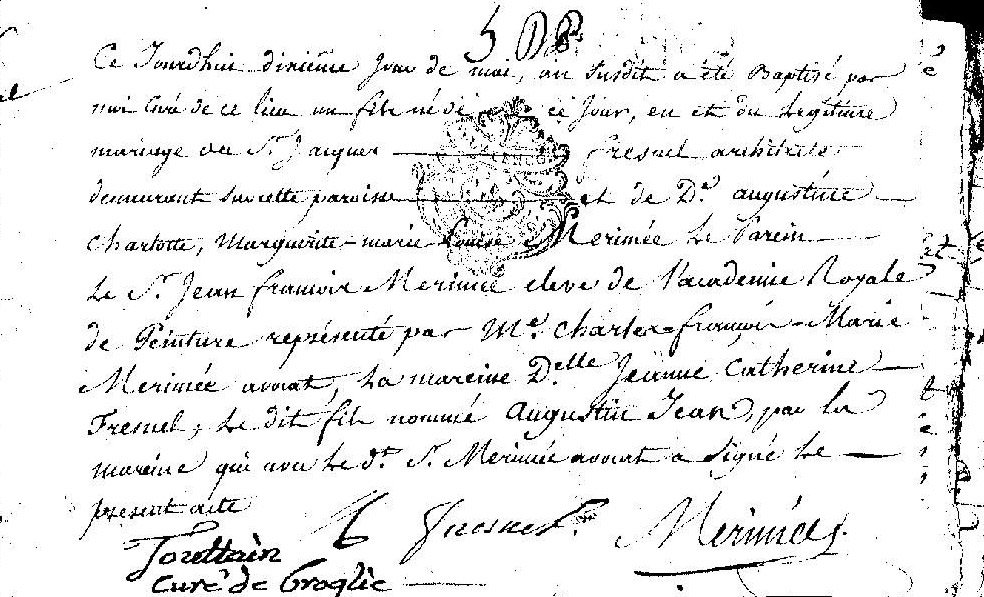 Ce Jourdhui dixième Jour de mai, an susdit a été Baptisé par
moi Curé de ce lieu un fils né de ce Jour, en et du Legitime
mariage du Sr. Jacques Fresnel architecte
demeurant sur cette paroisse et de De. augustine
Charlotte, Marguerite-marie Louise Merimée Le Parein
Le Sr. Jean françois Merimée eleve de l'academie Royale
de Peinture représenté par Me. Charles-françois-Marie
Merimée avocat, La mareine D.elle Jeanne Catherine
Fresnel, Le dit fils nommé Augustin Jean, par la
mareine qui avec Le dt. Sr. Merimée avocat a signé Le
présent acte
Fresnel Merimée
curé de Broglie